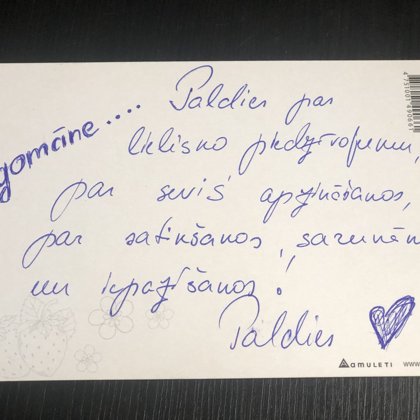 gomāne.... Paldies par
lielisko piedzīvojumu,
par sevis apzināšanos,
par satikšanos, sarunām
un iepazīšanos!
Paldies
amuleti www.